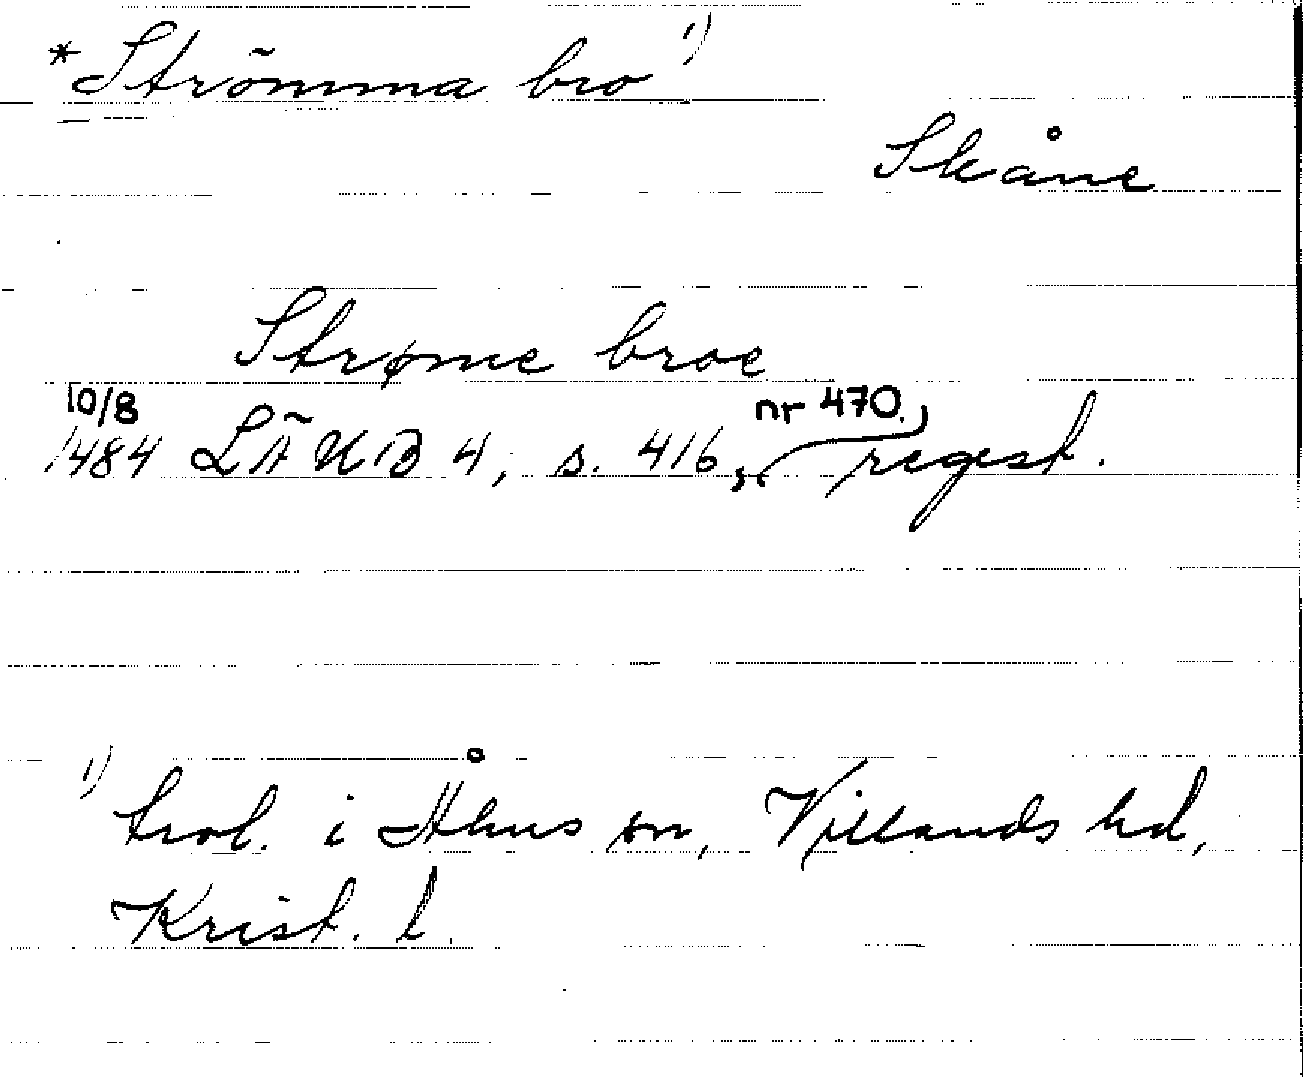 *Strömma bro 1)
Skåne
Strømme broe
10/8 nr 470.
1484 LÄUB 4, s. 416, regest.
1) trol. i Åhus sn, Villands hd,
Krist. l.